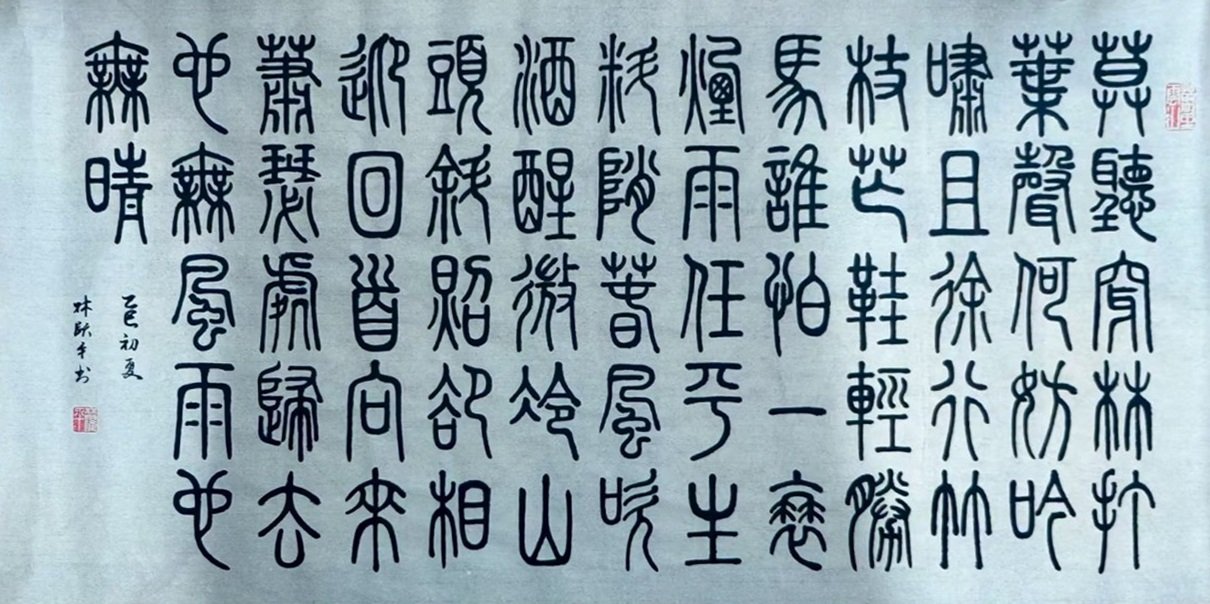 莫聽穿林打
葉聲何妨吟
嘯且徐行竹
杖芒鞋輕勝
馬誰怕一蓑
煙雨任平生
料陗春風吹
酒醒微冷山
頭斜照卻相
迎回首向來
蕭瑟處歸去
也無風雨也
無晴
乙巳初夏
林书